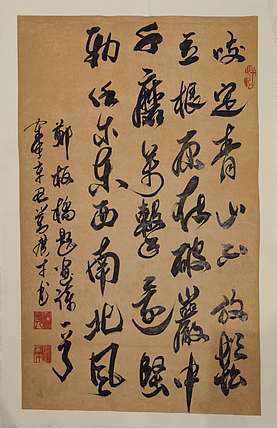 咬定青山不放鬆
立根原在破巖中
千磨萬擊還堅
勁任尔東西南北風
鄭板橋題畫詩一首
書